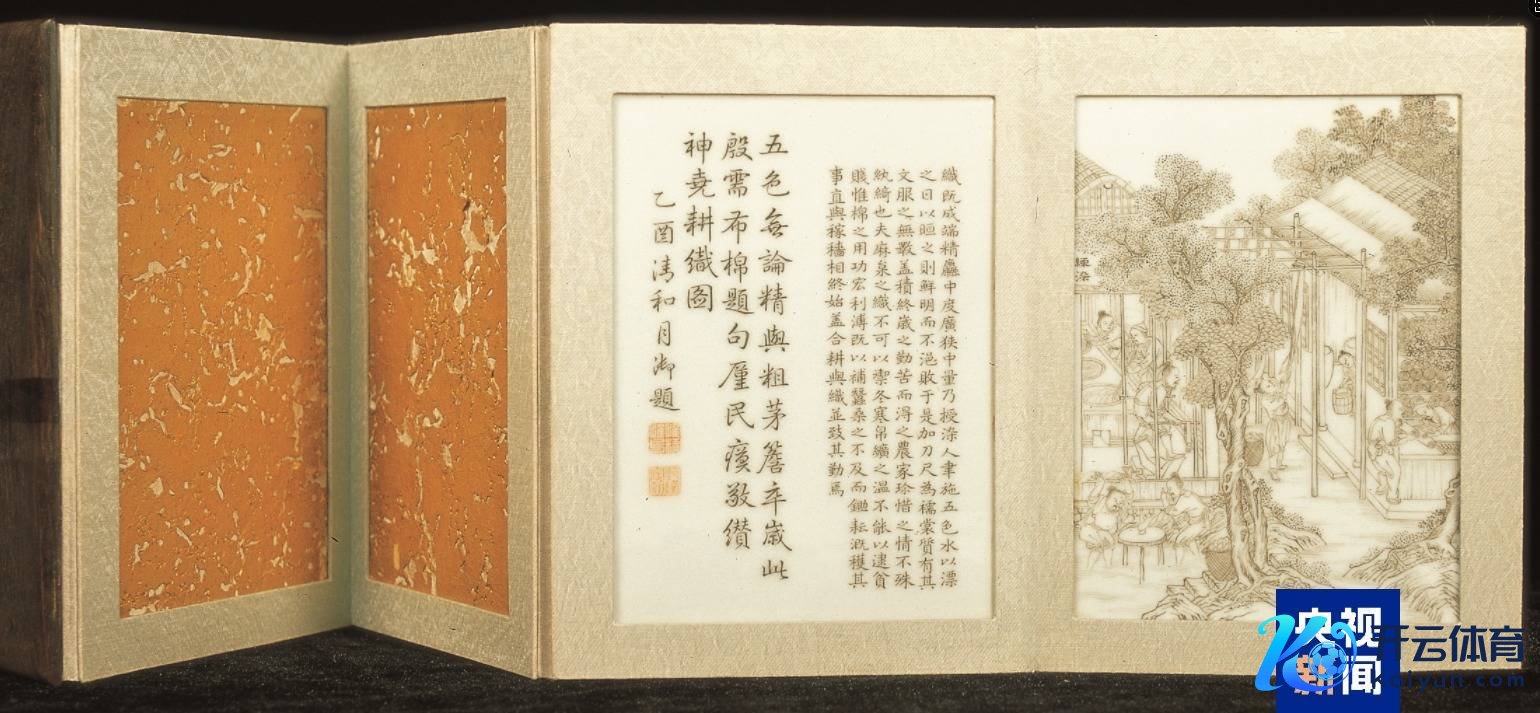 織既成端精麤中度廣狹中量乃授染人聿施五色水以漂
之日以晅之則鮮明而不浥敝于是加刀尺為襦裳質有其
文服之無斁蓋積終歲之勤苦而得之農家珍惜之情不殊
紈綺也夫麻枲之織不可以禦冬寒帛纊之温不能以逮貧
賤惟棉之用功宏利溥既以補蠶桑之不及而鋤耘溉穫其
事直與稼穡相終始蓋合耕與織並致其勤焉
五色無論精與粗茅簷卒歲此
殷需布棉題句廑民瘼敬纘
神堯耕織圖
乙酉清和月御題
央视
新闻
开云体育
kaiyun.com